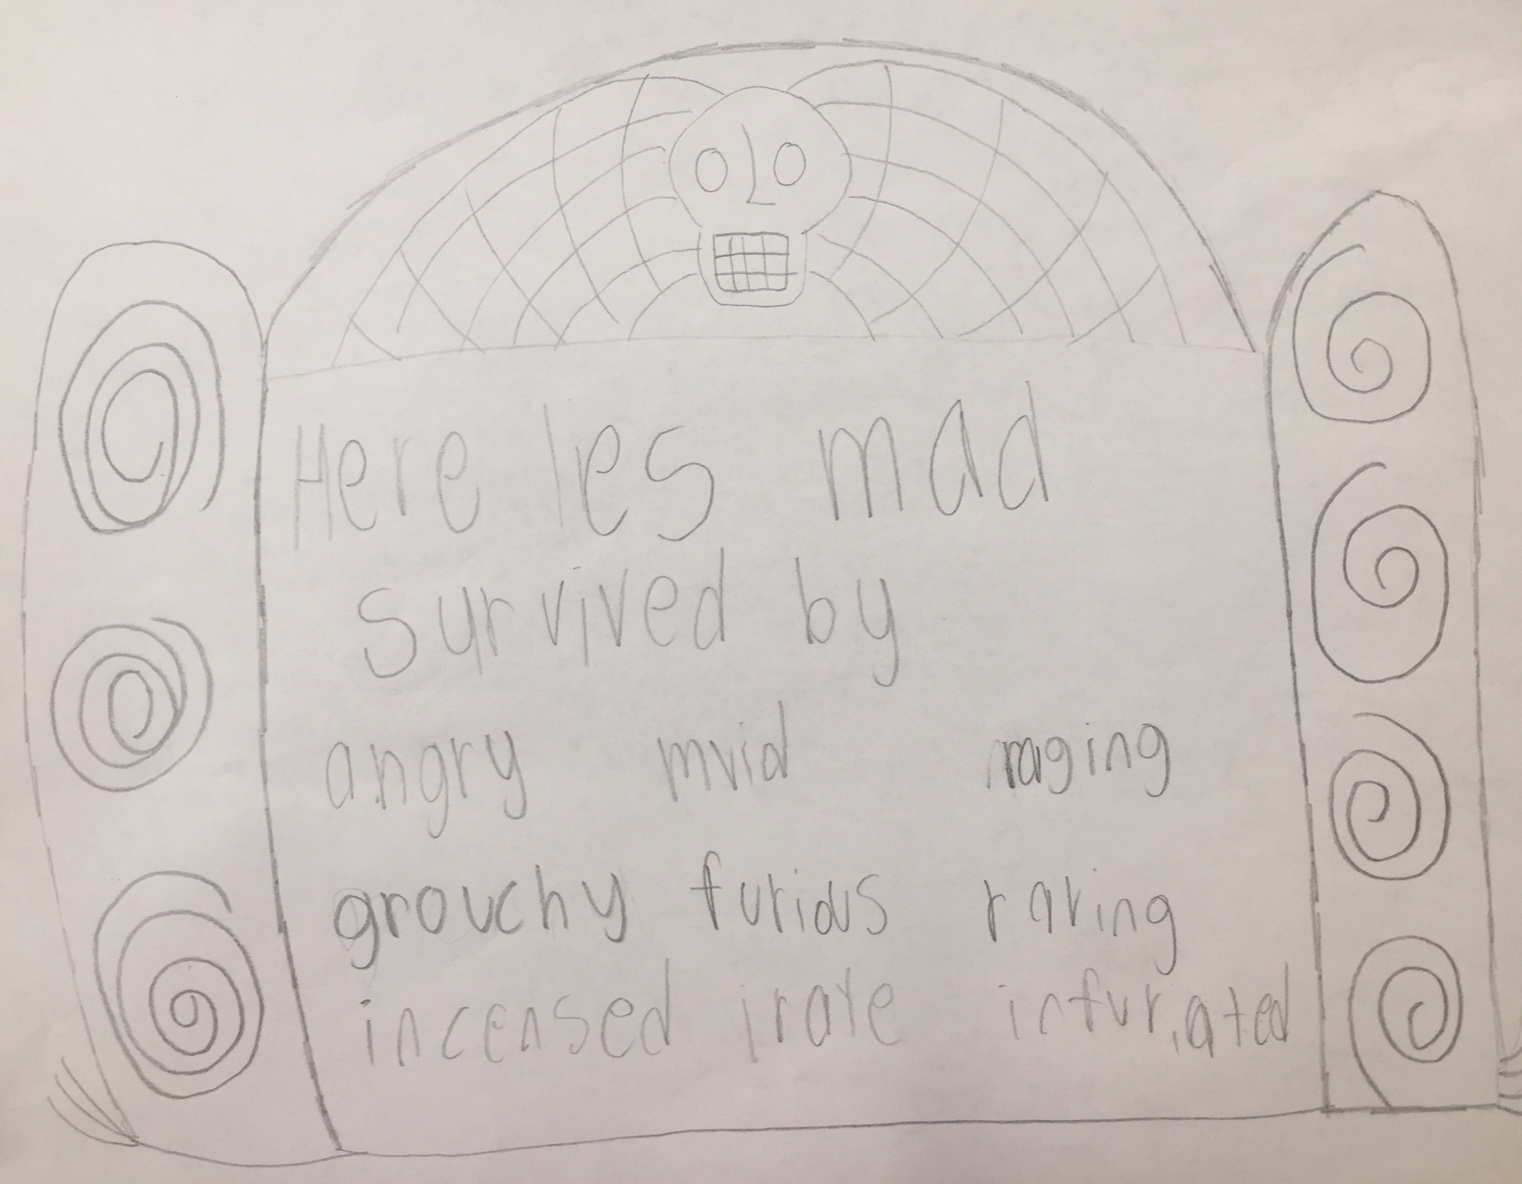 Here les mad
survived by
angry mvid raging
grouchy furious raving
incensed irate infuriated